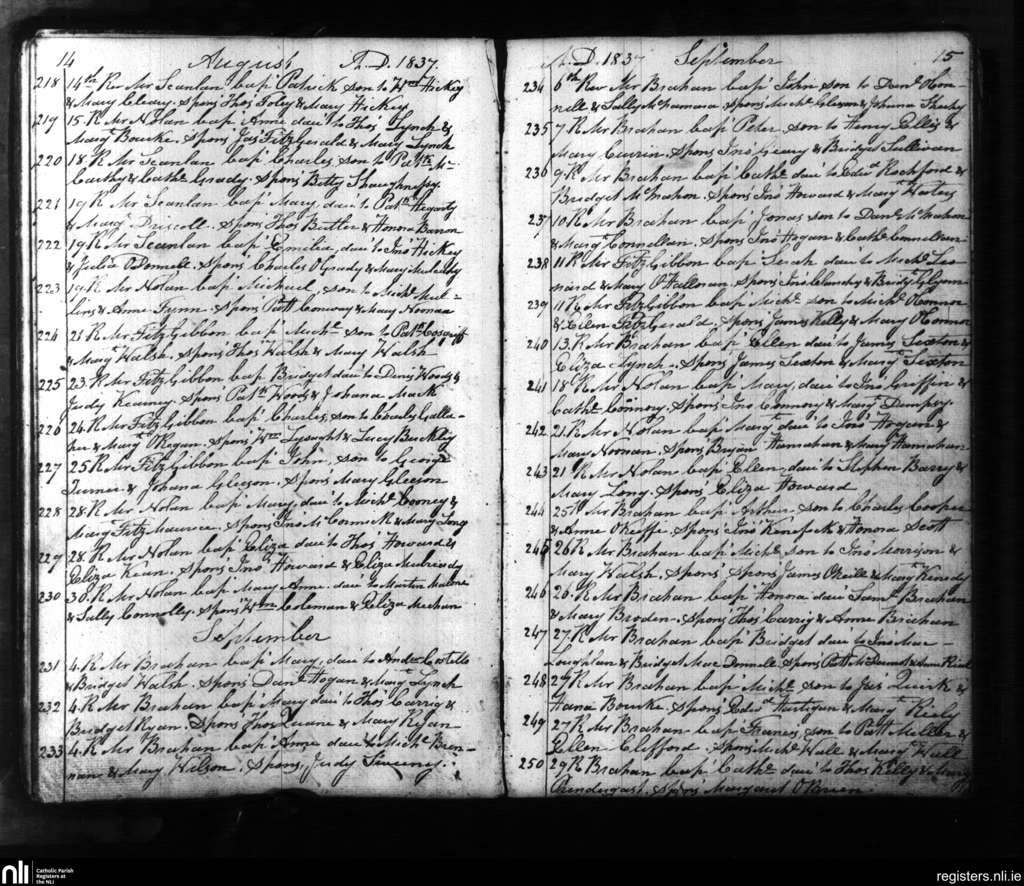 14 August A.D. 1837.
218 14th Rev Mr Scanlan bap' Patrick son to Wm Hickey
& Mary Cleary. Spons' Thos Foley & Mary Hickey
219 15. R Mr Nolan bap' Anne dau' to Thos Lynch &
Marg' Bourke. Spons' Jas FitzGerald & Mary Lynch
220 18. R Mr Scanlan bap' Charles, son to Patk Mc
Carthy & Cathe Grady. Spons' Betty Shaughnessy.
221 19 R Mr Scanlan bap' Mary, dau' to Patk Hegarty
& Marg' Driscoll. Spons' Thos Butler & Honora Baron
222 19 R Mr Scanlan bap' Emilia dau' to Jno Hickey
& Julia O Donnell. Spons' Charles O Grady & Mary
223 19. R Mr Nolan bap' Michael, son to Michl Mul-
lins & Anne Funn. Spons' Patt Conway & Mary Noonan
224 21 R Mr FitzGibbon bap' Michl son to Patk Cosgriff
& Marg' Walsh. Spons' Thos Walsh & Mary Walsh
225 23. R Mr FitzGibbon bap' Bridget dau' to Denis Woods &
Judy Kearney. Spons' Patk Woods & Johana Mack
226 24. R Mr FitzGibbon bap' Charles, son to Charly Galla-
her & Marg' O Regan. Spons' Wm Lysaght & Lucy Buckley
227 25 R Mr FitzGibbon bap' John, son to George
Turner & Johana Gleeson. Spons Mary Gleeson
228 28. R Mr Nolan bap' Mary, dau' to Michl Cooney &
Marg' FitzMaurice. Spons' Jno McCormick & Mary Long
229 28. R Mr Nolan bap' Eliza dau' to Thos Howard &
Eliza Kean. Spons' Jno Howard & Eliza Mulready
230 30. R Mr Nolan bap' Mary Anne dau' to Martin Malone
& Sally Connolly. Spons' Wm Coleman & Eliza Meehan
September
231 4. R Mr Brahan bap' Mary, dau' to Andw Costello
& Bridget Walsh. Spons' Danl Hogan & Marg' Lynch
232 4. R Mr Brahan bap' Mary dau' to Thos Carrig &
Bridget Ryan. Spons' Thos Quane & Mary Ryan
233 4. R Mr Brahan bap' Anne dau' to Michl Bren-
nan & Mary Wilson. Spons, Judy Sweeny.
A.D. 1837 September 15
234 6th Rev Mr Brahan bap' John son to Danl O Con-
nell & Sally McNamara. Spons' Michl Gleeson & Johana Sheehy
235 7. R Mr Brahan bap' Peter son to Henry Ellis &
Mary Currin. Spons Jno Geary & Bridget Sullivan
236 9. R Mr Brahan bap' Cathe dau' to Edwd Rochford &
Bridget McMahon. Spons' Jno Howard & Marg'
237 10. R Mr Brahan bap' Jonas son to Danl McMahon
& Marg' Connellan. Spons' Jno Hogan & Cathe Connellan
238 11 R Mr FitzGibbon bap' Sarah dau' to Michl Leo-
nard & Mary O Halloran. Spons' Jno Clanchy & Bridgt Glynn
239 11 R. Mr FitzGibbon bap' Michl son to Michl O Connor
& Ellen FitzGerald. Spons James Kelly & Mary O Connor
240 13. R Mr Brahan bap' Ellen dau' to James Sexton &
Eliza Lynch. Spons' James Sexton & Marg' Sexton
241 18 R Mr Nolan bap' Mary, dau' to Jno Griffin &
Cathe Connory. Spons' Jno Connory & Marg' Dempsy.
242 21. R Mr Nolan bap' Mary dau' to Jno Hogan &
Mary Noonan. Spons' Bryan Hanrahan & Mary Hanrahan
243 21 R Mr Nolan bap' Ellen, dau' to Stephen Barry &
Mary Long. Spons' Eliza Howard
244 25 Mr Brahan bap' Arthur son to Charles Cooper
& Anne O Keffe. Spons' Jno Kenefeck & Honora Scott
245 26 R Mr Brahan bap' Michl son to Jno Morrison &
Mary Walsh. Spons' Spons' James O Neill & Mary Kenedy
246 26. R Mr Brahan bap' Honora dau' Saml Brahan
& Mary Broden. Spons' Thos Carrig & Anne Brahan
247 27. R Mr Brahan bap' Bridget dau' to Jno Mac
Loughlan & Bridget Mac Donnell. Spons' Patt
248 27 R Mr Brahan bap' Michl son to Jas Quirk &
Hana Bourke. Spons' Edwd Hartigan & Mary Kiely
249 27 R Mr Brahan bap' Francis, son to Patt Meller &
Ellen Clifford. Spons' Michl Wall & Marg' Wall
250 29 R Brahan bap' Cathe dau' to Thos Kelly & Mary
Prendergast. Spons Margaret O Brien.
nli Catholic Parish
Registers at
the NLI
registers.nli.ie